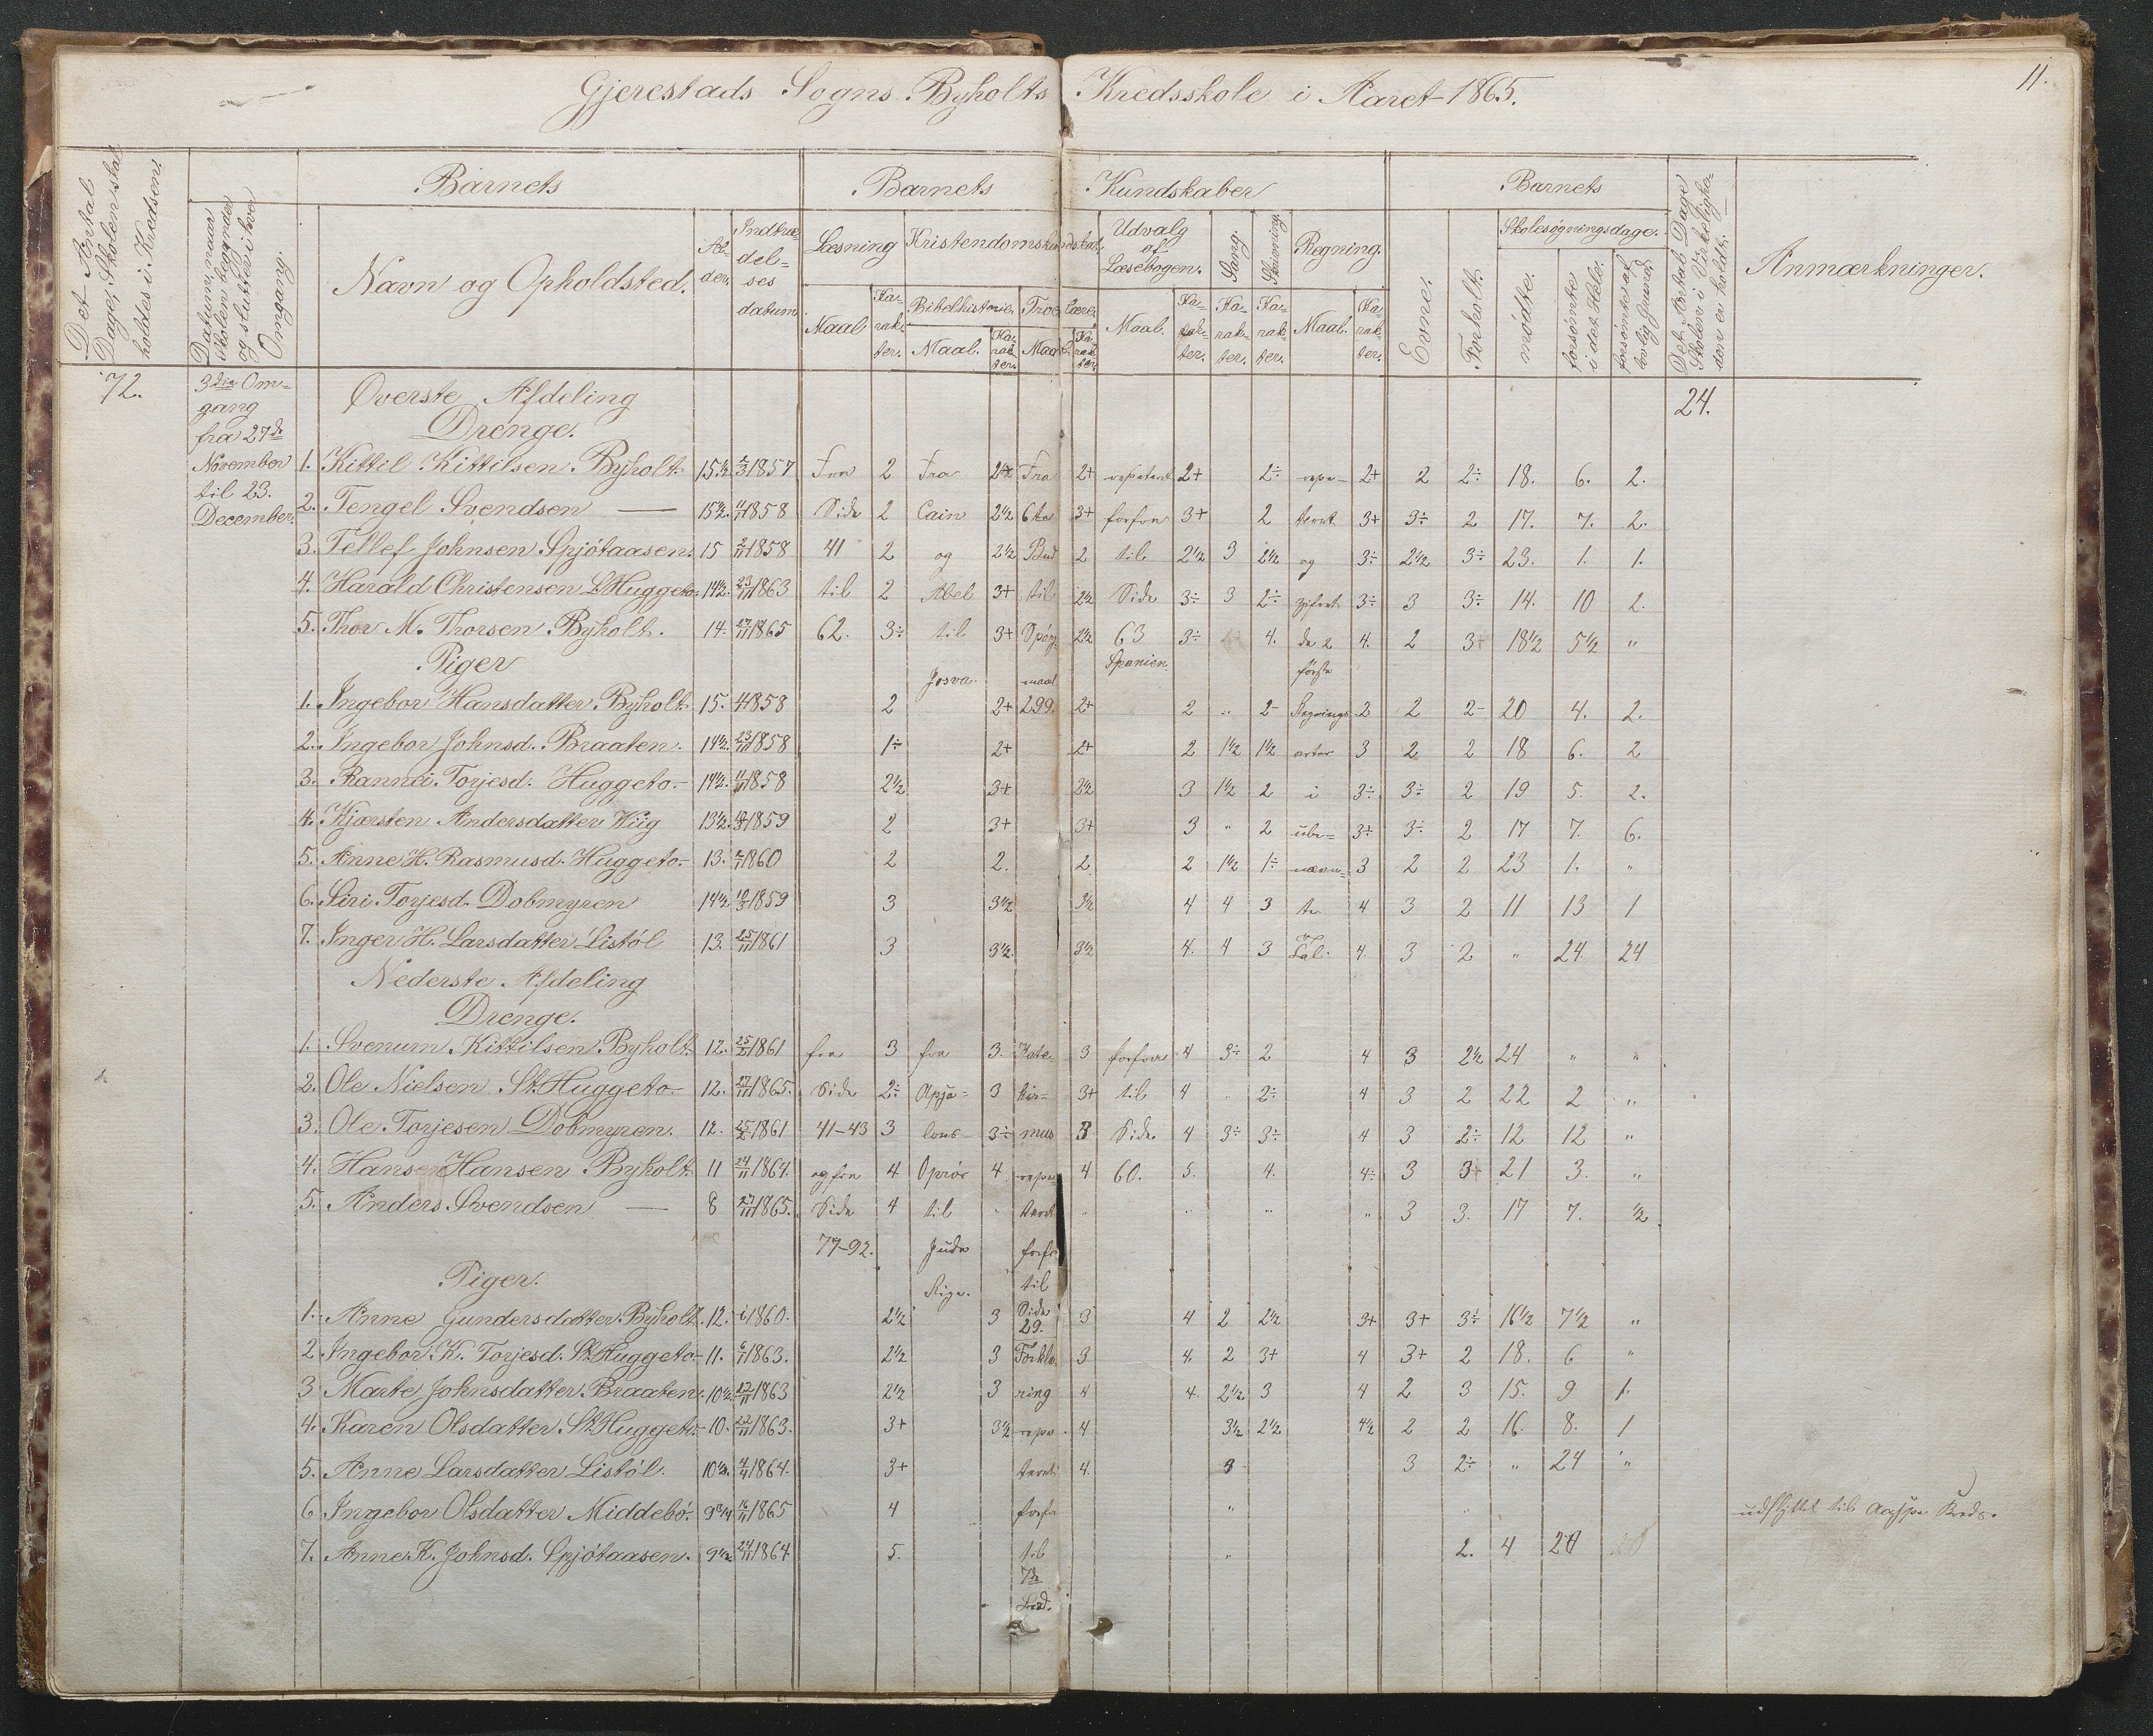 11.
Gjerestads Sogns Byholts Kredsskole i Aaret 1865.
Det Antal Dage, Skolen skal holdes i Kredsen.
Datum, naar Skolen begynder og slutter i hver Omgang.
Barnets
Navn og Opholdsted.
Al-der.
Indtræ-del=ses datum
Barnets Kundskaber
Læsning
Maal
Ka-rak-ter.
Kristendomskundskab.
Bibelhistorie.
Maal.
Ka-rak-ter.
Troeslære.
Maal.
Ka-rak-ter.
Udvalg af Læsebogen.
Maal.
Ka-rak-ter.
Sang.
Ka-rak-ter.
Skrivning.
Ka-rak-ter.
Regning.
Maal.
Ka-rak-ter.
Barnets
Evne.
Forholdt.
Skolesøgningsdage.
mødte.
forsømte i det Hele.
forsømte af lovlig Grund.
Det Antal Dage Skolen i Virkeligheden er holdt.
Anmærkninger.
72.
3die Om=
gang
fra 27de
November
til 23.
December.
Øverste Afdeling
24.
Drenge.
1. Kittil Kittilsen Byholt. 15½ 2/3 1857 Fra 2 Fra 2+ Fra 2+ repetert 2+ 2÷ repe- 2+ 2 2÷ 18. 6. 2.
2. Tengel Svendsen — 15½ 1858 Side 2 Cain 2½ 6te 3+ forfra 3+ 2 teret 3+ 3÷ 2 17. 7. 2.
3. Tellef Johnsen Spjótaasen. 15 2/11 1858 41 2 og 2½ Bud 2 til 2½ 3 2½ og 3÷ 2½ 3÷ 23. 1. 1.
4. Harald Christensen L. Huggeto- 14½ 23/11 1863 til 2 Abel 3+ til 2½ Side 3÷ 3 2÷ 3÷ 3 3÷ 14. 10 2.
5. Thor M. Thorsen Byholt. 14. 27/11 1865 62. 3÷ til 3+ Spørg 2½ 63 3÷ 4. de 2 4. 2 3÷ 18½ 5½ "
Piger
Josva. maal Spanien. første
1. Ingebor Hansdatter Byholt. 15. 1858 2 2+ 299. 2+ 2 " 2- Regnings 2 2 2- 20 4. 2.
2. Ingebor Johnsd. Braaten. 14½ 23/11 1858 1÷ 2+ 2+ 2 1½ 1½ arter 3 2 2 18 6. 2
3. Rannei Torjesd. Huggeto- 14½ 1858 2½ 3+ 2½ 3 1½ 2 i 3÷ 3÷ 2 19 5. 2.
4. Kjersten Andersdatter Wiig 13½ 1859 2 3+ 3+ 3 " 2 ube= 3÷ 3÷ 2 17 7. 6.
5. Anne H. Rasmusd. Huggeto- 13. 1860 2 2. 2 2 1½ 1÷ nævn= 3 2 2 23 1. "
6. Siri Torjesd. Dobmyren 14½ 10/3 1859 3 3½ 3½ 4 4 3 te 4 3 2 11 13 1
7. Inger H. Larsdatter Listól 13. 25/11 1861 3 3½ 3½ 4. 4 3 Tal. 4. 3 2 " 24 24
Nederste Afdeling
Drenge.
1. Svenum Kittilsen Byholt. 12. 1861 fra 3 fra 3. Kate- 3 forfra 4 3÷ 2 4 3 2½ 24 " "
2. Ole Nielsen St. Huggeto- 12. 27/11 1865. Side 2÷ 3 kis= 3+ til 4 " 2÷ 4 3 2 22 2 "
3. Ole Torjesen Dobmyren. 12. 1861 41-43 3 3÷ mus 3 Side 4 3÷ 3÷ 4 3 2÷ 12 12 "
4. Hans Hansen Byholt. 11 24/11 1864. og fra 4 Oprør 4. repe- 4 60. 5. 4. 4÷ 3 3 21 3. "
5. Anders Svendsen — 8 27/11 1865. Side 4 til " teret " " " " 3 3. 17 7. ½
77-92. Juda forfr
Piger.
Rige. til
1. Anne Gundersdatter Byholt. 12. 1860. 2½ 3 Side 29. 3 4 2 2½ 3+ 3+ 3÷ 16½ 7½ "
2. Ingebor K. Torjesd. St. Huggeto- 11. 1863. 2½ 3 Forkla- 3 4. 2 3+ 4 3+ 2 18. 6 "
3 Marte Johnsdatter Braaten. 10½ 1863 2½ 3 ring 4 4. 2½ 3 4 2 3 15. 9 1.
4. Karen Olsdatter St. Huggeto- 10. 1863. 3+ 3½ repe- 4 3½ 2½ 4½ 2 2 16. 8. 1
5. Anne Larsdatter Listól. 10½ 1864. 3+ teret 4. 3 3 2÷ " 24 "
6 Ingebor Olsdatter Middebó- 9¾ 1865 4 forfra " " udflyttet til Kreds.
7. Anne K. Johnsd. Spjótaasen. 9½ 24/11 1864 5. til " 2. 4 20
7de
Bud.